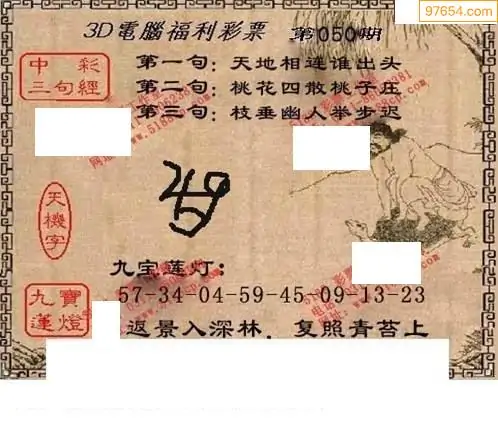 97654.com
3D電腦福利彩票 第050期
中彩
三句經
第一句：天地相连谁出头
第二句：桃花四散桃子庄
第三句：枝垂幽人举步迟
天機字
九宝莲灯：
九寶
蓮燈
57-34-04-59-45-09-13-23
返景入深林．复照青苔上